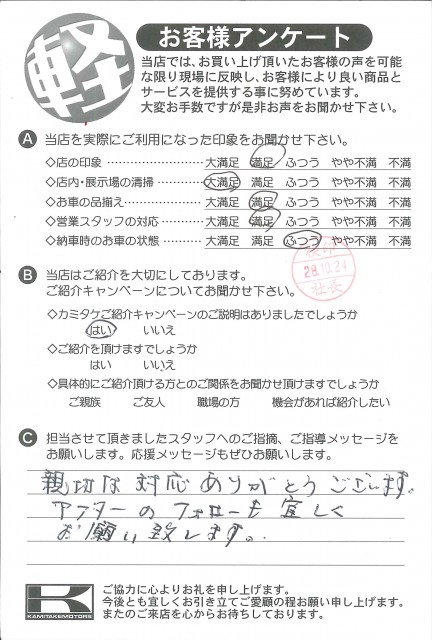 軽
お客様アンケート
当店では、お買い上げ頂いたお客様の声を可能
な限り現場に反映し、お客様により良い商品と
サービスを提供する事に努めています。
大変お手数ですが是非お声をお聞かせ下さい。
A 当店を実際にご利用になった印象をお聞かせ下さい。
◇店の印象 …………………… 大満足 満足 ふつう やや不満 不満
◇店内・展示場の清掃 ………… 大満足 満足 ふつう やや不満 不満
◇お車の品揃え………………… 大満足 満足 ふつう やや不満 不満
◇営業スタッフの対応 ………… 大満足 満足 ふつう やや不満 不満
◇納車時のお車の状態 ………… 大満足 満足 ふつう やや不満 不満
28.10.24
社長
B 当店はご紹介を大切にしてあります。
ご紹介キャンペーンについてお聞かせ下さい。
◇カミタケご紹介キャンペーンのご説明はありましたでしょうか
はい いいえ
◇ご紹介を頂けますでしょうか
はい いいえ
◇具体的にご紹介頂ける方とのご関係をお聞かせ頂けますでしょうか
ご親族 ご友人 職場の方 機会があれば紹介したい
C 担当させて頂きましたスタッフへのご指摘、ご指導メッセージを
お願いします。応援メッセージもぜひお願いします。
親切な対応ありがとうございます。
アフターのフォローも宜しく
お願い致します。
K
KAMITAKEMOTORS
ご協力に心よりお礼を申し上げます。
今後とも宜しくお引き立てご愛顧の程お願い申し上げます。
またのご来店を心からお待ちしております。